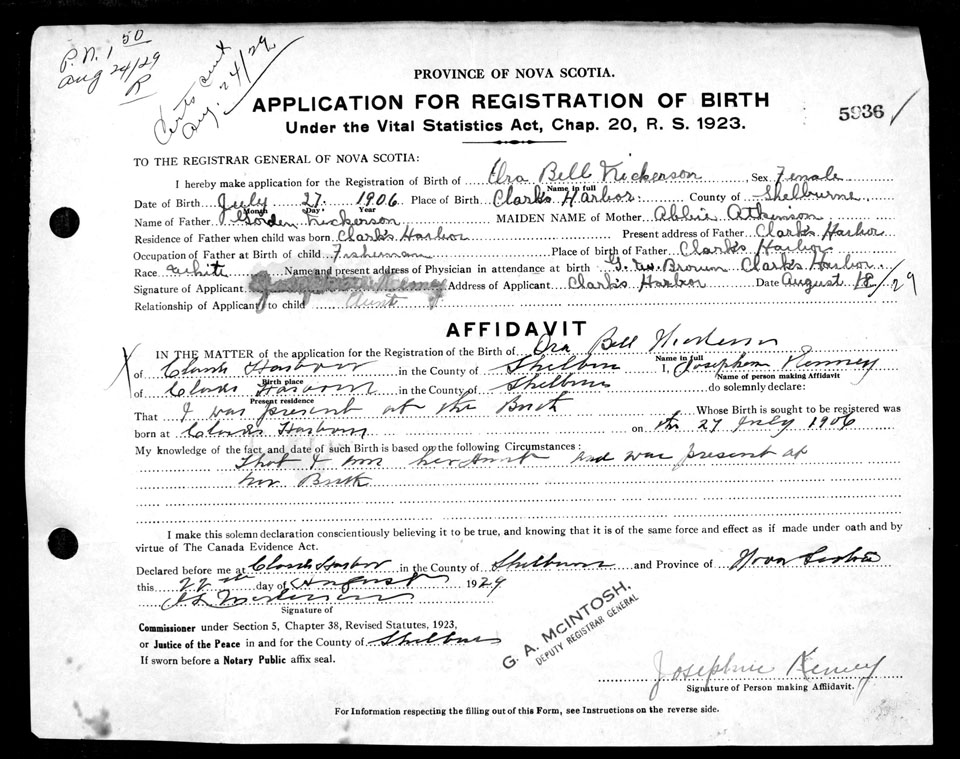 P.N. 1 50
Aug 24/29
R
Certs sent
Aug. 24/29
PROVINCE OF NOVA SCOTIA.
APPLICATION FOR REGISTRATION OF BIRTH
5936
Under the Vital Statistics Act, Chap. 20, R. S. 1923.
TO THE REGISTRAR GENERAL OF NOVA SCOTIA:
I hereby make application for the Registration of Birth of Ora Bell Nickerson Sex Female
Name in full
Date of Birth July 27. 1906 Place of Birth Clark's Harbor County of Shelburne
Month Day Year
Name of Father Gorden Nickerson MAIDEN NAME of Mother Abbie Atkinson
Residence of Father when child was born Clark's Harbor Present address of Father Clark's Harbor
Occupation of Father at Birth of child Fisherman Place of birth of Father Clark's Harbor
Race White Name and present address of Physician in attendance at birth G. W. Brown Clark's Harbor
Signature of Applicant Kenney Address of Applicant Clark's Harbor Date August 12/29
Relationship of Applicant to child Aunt
AFFIDAVIT
IN THE MATTER of the application for the Registration of the Birth of Ora Bell Nickerson
Name in full
of Clarks Harbour in the County of Shelburne I, Josephine Kenney
Birth place Name of person making Affidavit
of Clarks Harbour in the County of Shelburne do solemnly declare:
Present residence
That I was present at the Birth Whose Birth is sought to be registered was
born at Clarks Harbour on the 27 July 1906
My knowledge of the fact and date of such Birth is based on the following Circumstances:
That I am her Aunt and was present at
her Birth
I make this solemn declaration conscientiously believing it to be true, and knowing that it is of the same force and effect as if made under oath and by
virtue of The Canada Evidence Act.
Declared before me at Clarks Harbor in the County of Shelburne and Province of Nova Scotia
this 22nd day of August 1929
Signature of
Commissioner under Section 5, Chapter 38, Revised Statutes, 1923,
or Justice of the Peace in and for the County of Shelburne
If sworn before a Notary Public affix seal.
G. A. McINTOSH.
DEPUTY REGISTRAR GENERAL
Josephine Kenney
Signature of Person making Affidavit.
For Information respecting the filling out of this Form, see Instructions on the reverse side.